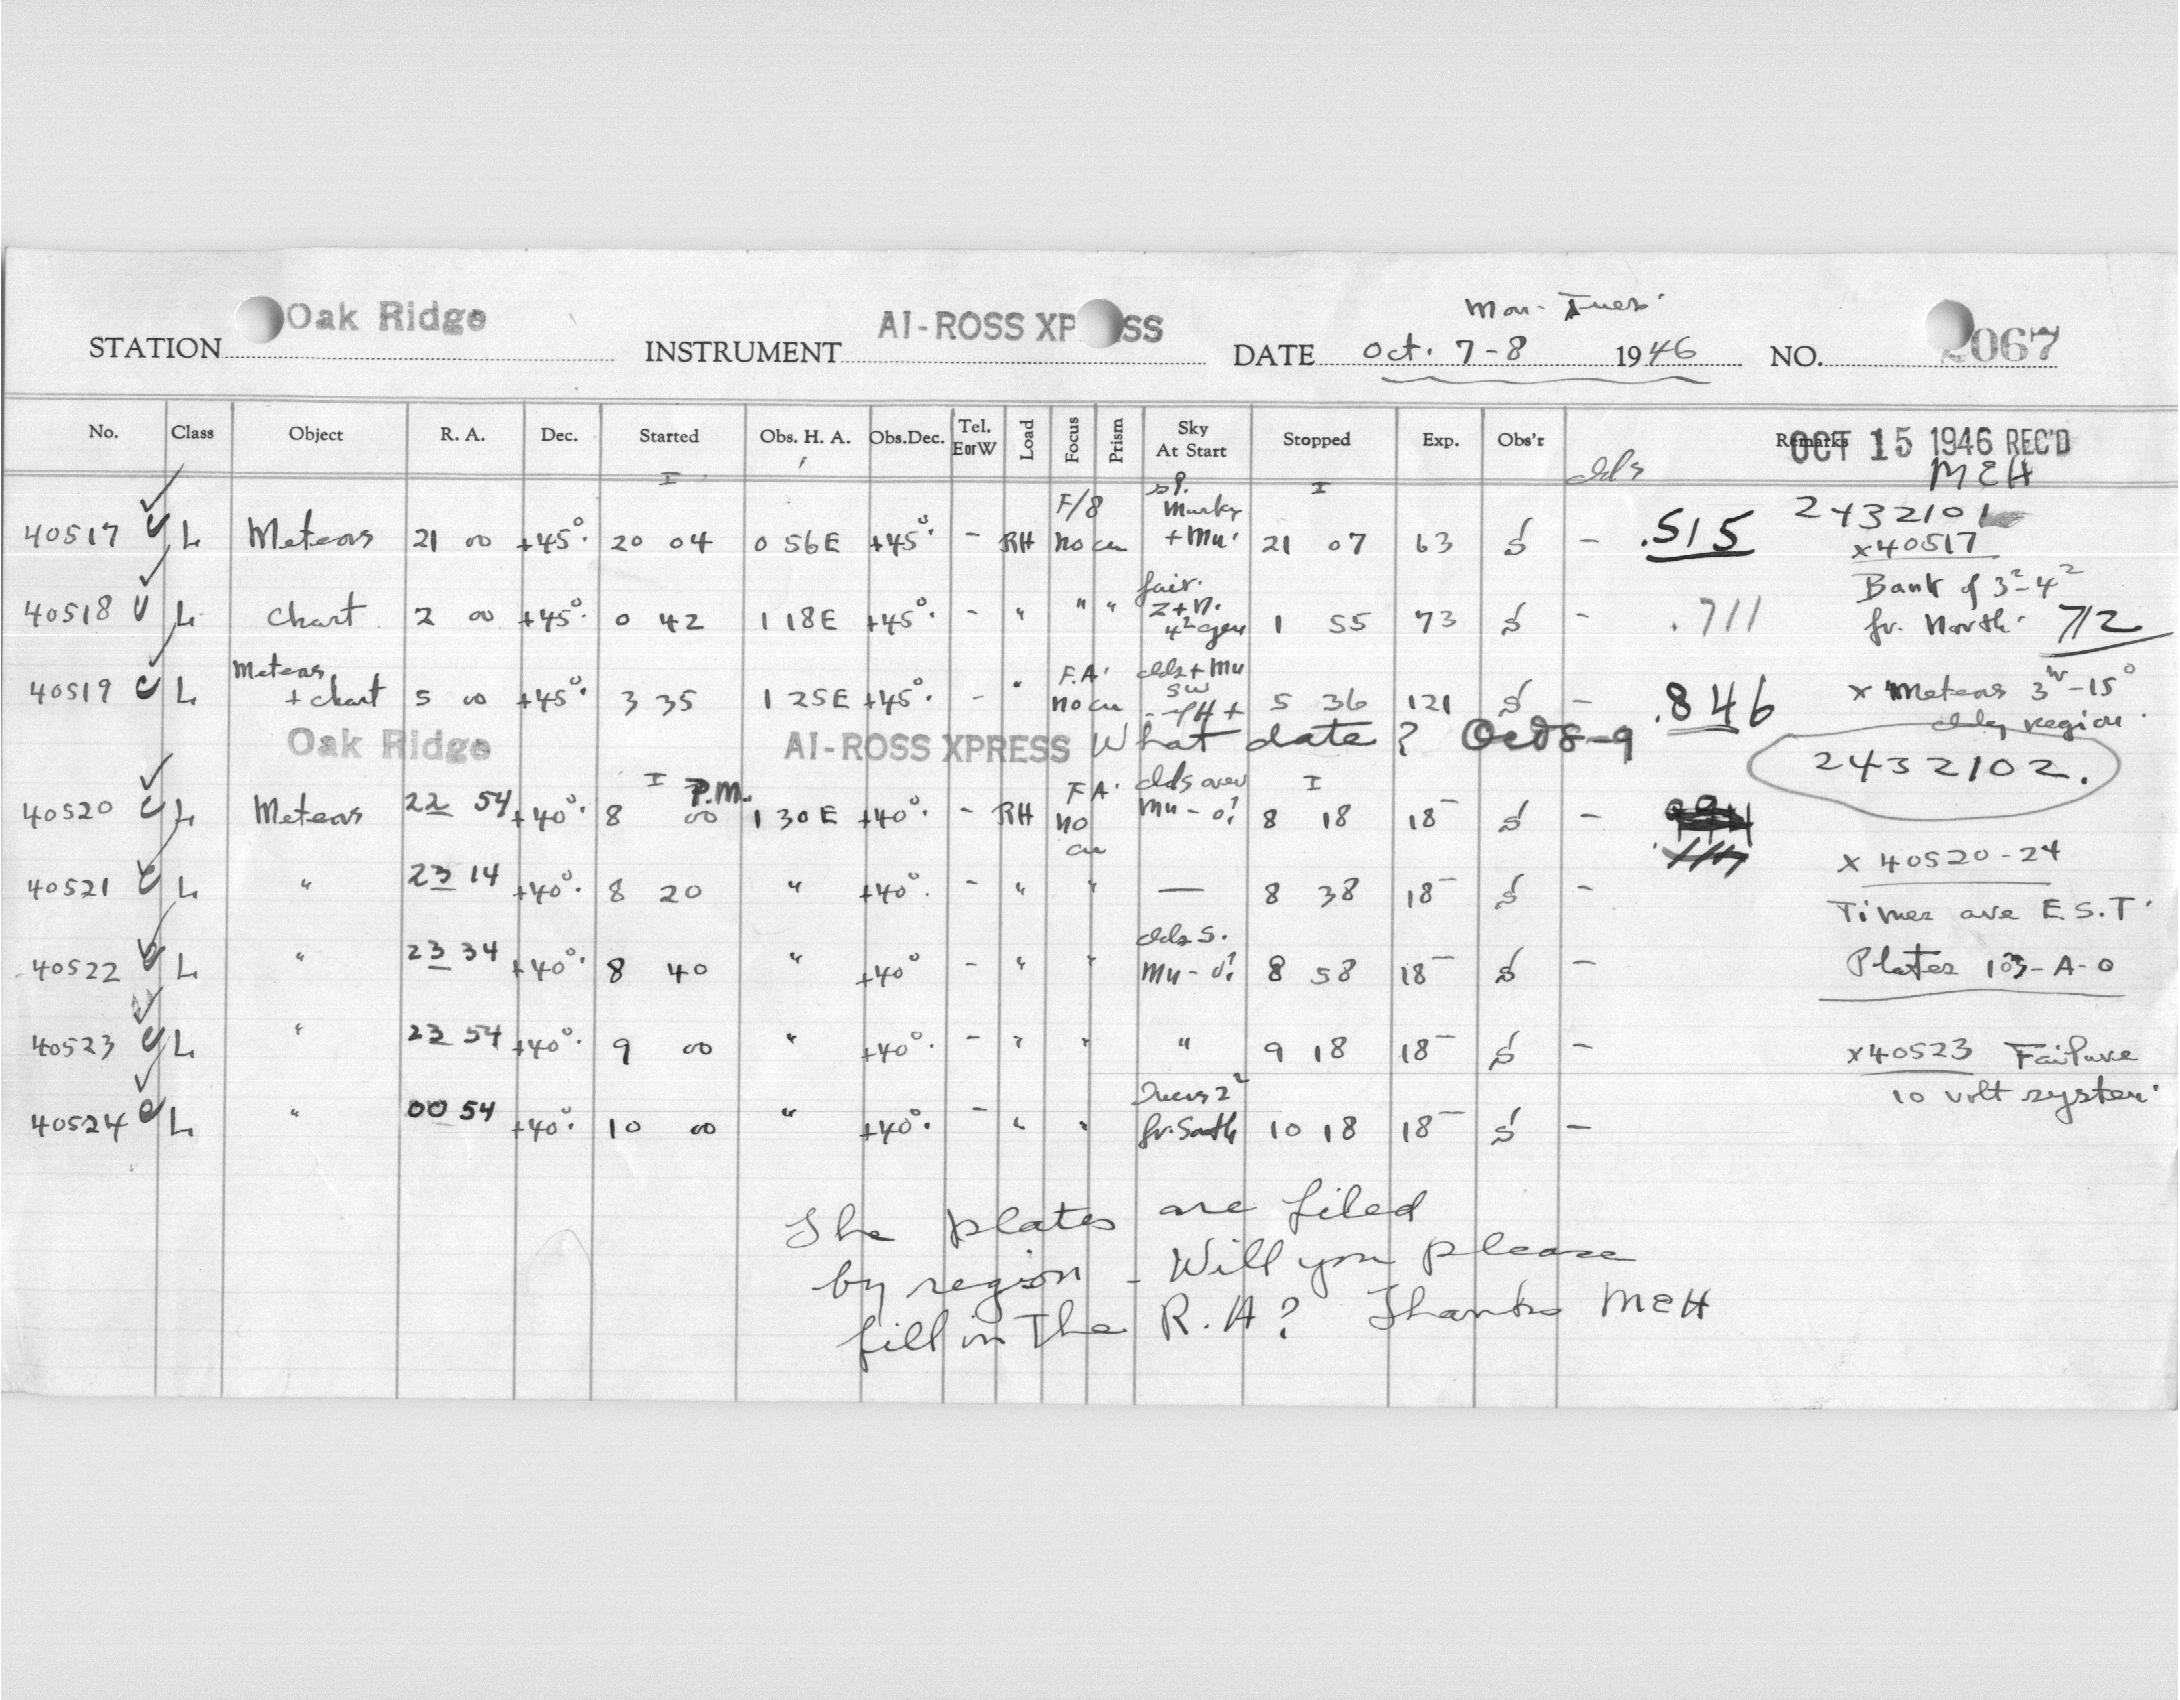 Mon - Tues.
STATION Oak Ridge INSTRUMENT AI-ROSS XP SS DATE Oct. 7-8 1946 NO. 2067
No. Class Object R. A. Dec. Started Obs. H. A. Obs.Dec. Tel. EorW Load Focus Prism Sky At Start Stopped Exp. Obs'r Remarks
OCT 15 1946 REC'D
MEH
clds
40517 L Meteors 21 00 +45° 20 04 0 56E +45° - RH F/8 no cu + Mu. 21 07 63 S - .515 2432101
x40517
40518 L Chart 2 00 +45° 0 42 1 18E +45° - " " " fair. Z+N. 1 55 73 S - .711 Bank of 3²-4²
fr. North. 712
40519 L Meteors + chart 5 00 +45° 3 35 1 25E +45° - " F.A. no cu clds + Mu SW 5 36 121 S - .846 x Meteors 3ʷ-15°
cldy region.
Oak Ridge AI-ROSS XPRESS What date? Oct 8-9
2432102.
40520 L Meteors 22 54 +40° 8 00 P.M. 1 30E +40° - RH F.A. no cu clds over Mu - 0? 8 18 18 S -
x 40520-24
40521 L " 23 14 +40° 8 20 " +40° - " " — 8 38 18 S -
Times are E.S.T.
40522 L " 23 34 +40° 8 40 " +40° - " " clds S. Mu - 0? 8 58 18 S - Plates 103-A-O
40523 L " 23 54 +40° 9 00 " +40° - " " " 9 18 18 S - x40523 Failure
10 volt system.
40524 L " 00 54 +40° 10 00 " +40° - " " fr. South 10 18 18 S -
The plates are filed
by region - Will you please
fill in The R.A? Thanks MEH